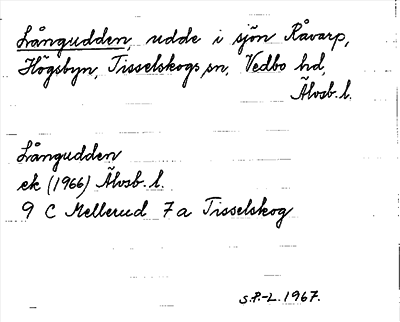 Långudden, udde i sjön Råvarp,
Högsbyn, Tisselskogs sn, Vedbo hd,
Älvsb. l.
Långudden
ek (1966) Älvsb. l.
9 C Mellerud 7 a Tisselskog
S.P.-L. 1967.